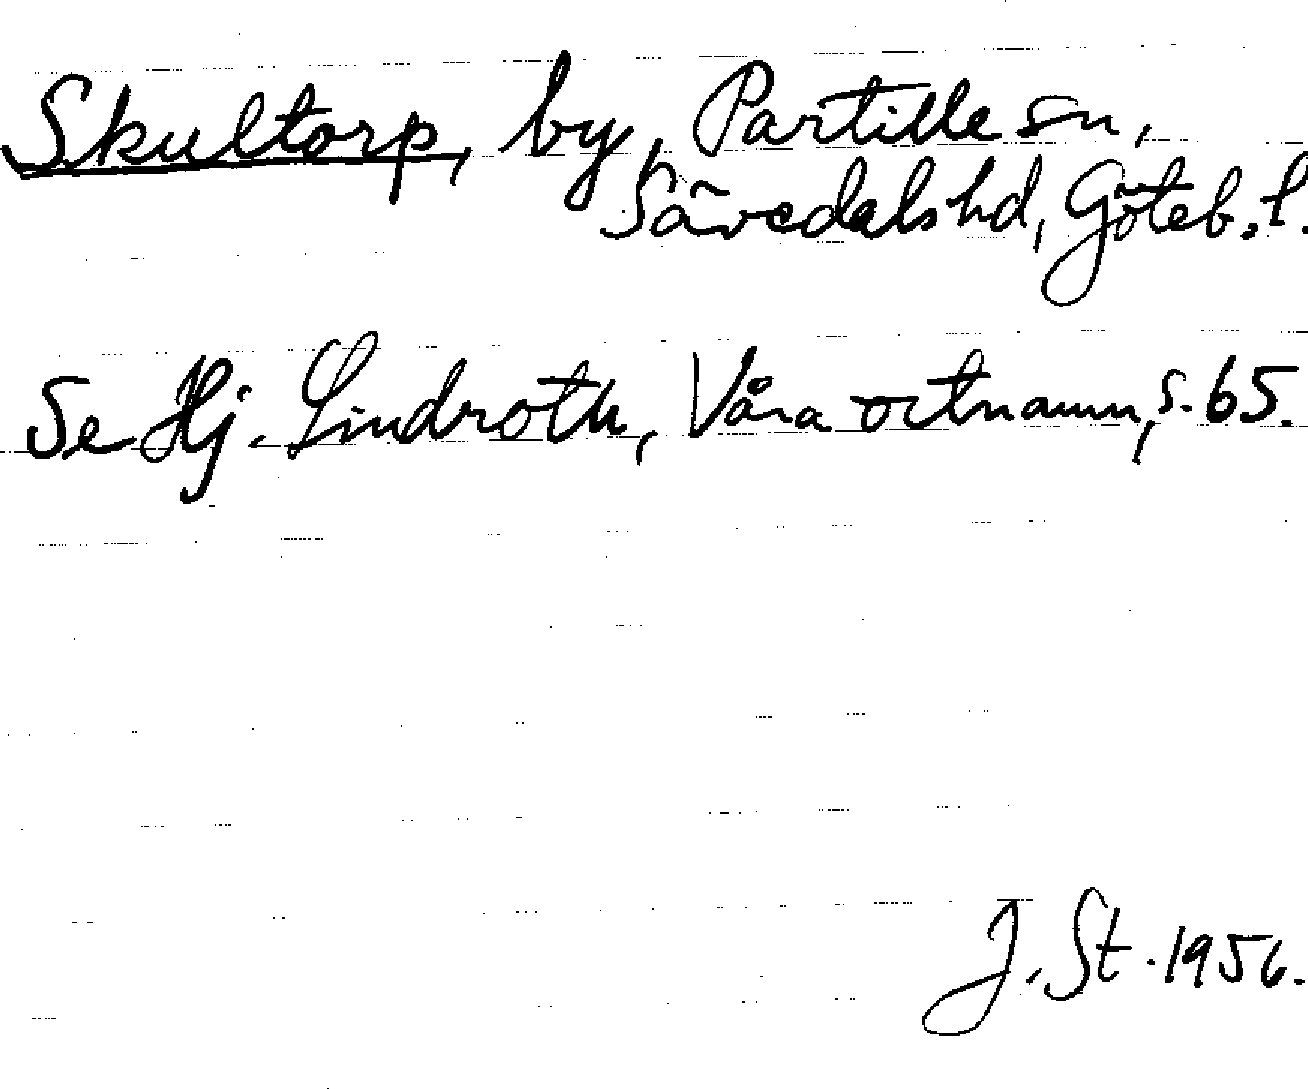 Skultorp, by, Partille sn,
Sävedals hd, Göteb. l.
Se Hj. Lindroth, Våra ortnamn, s. 65.
J. St. 1956.